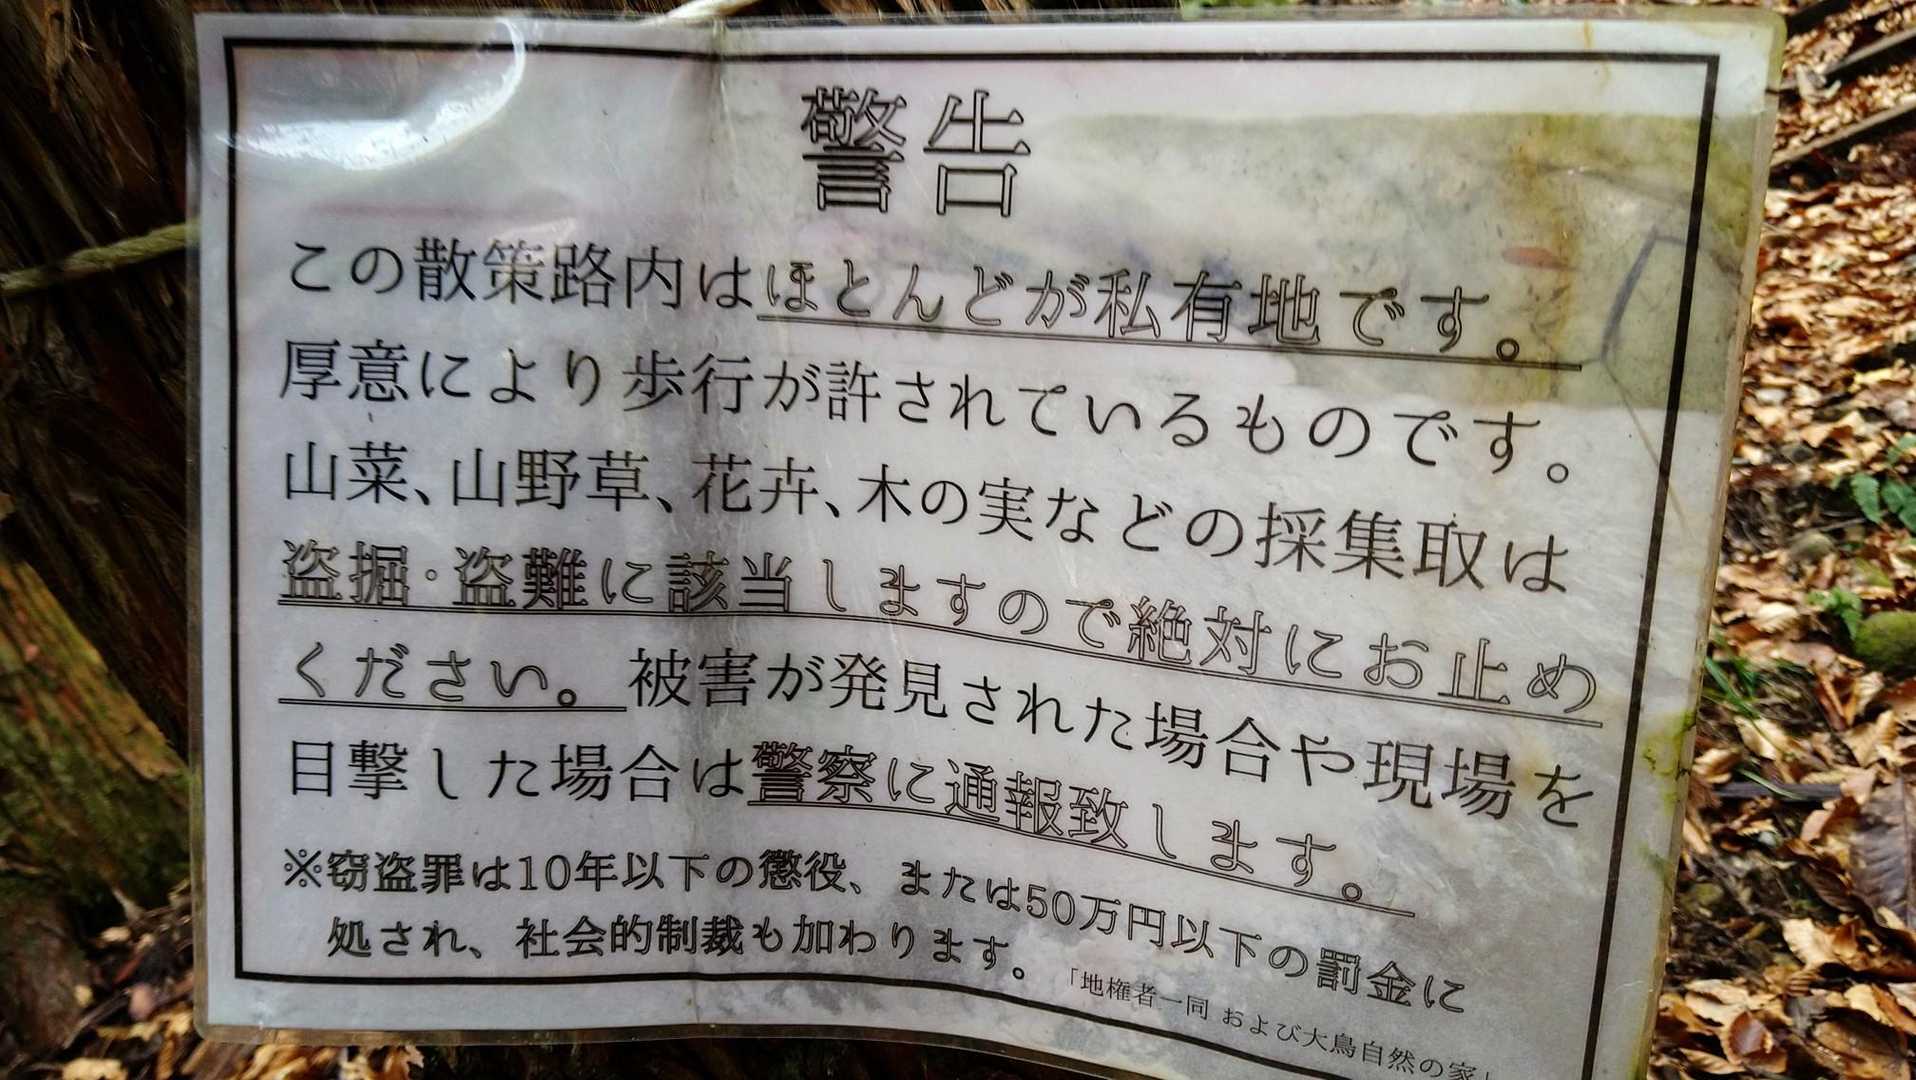 警告
この散策路内はほとんどが私有地です。
厚意により歩行が許されているものです。
山菜、山野草、花卉、木の実などの採集取は
盗掘・盗難に該当しますので絶対にお止め
ください。被害が発見された場合や現場を
目撃した場合は警察に通報致します。
※窃盗罪は10年以下の懲役、または50万円以下の罰金に
処され、社会的制裁も加わります。
「地権者一同 および大鳥自然の家」